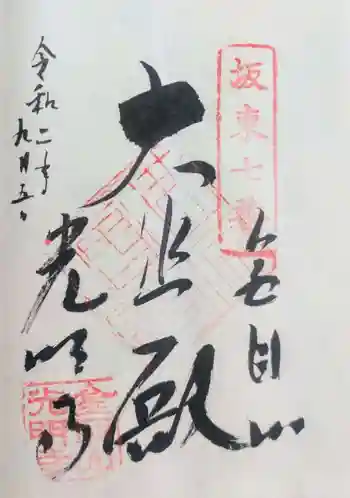 坂東七番
金目山
大悲殿
光明寺
令和二年九月五日